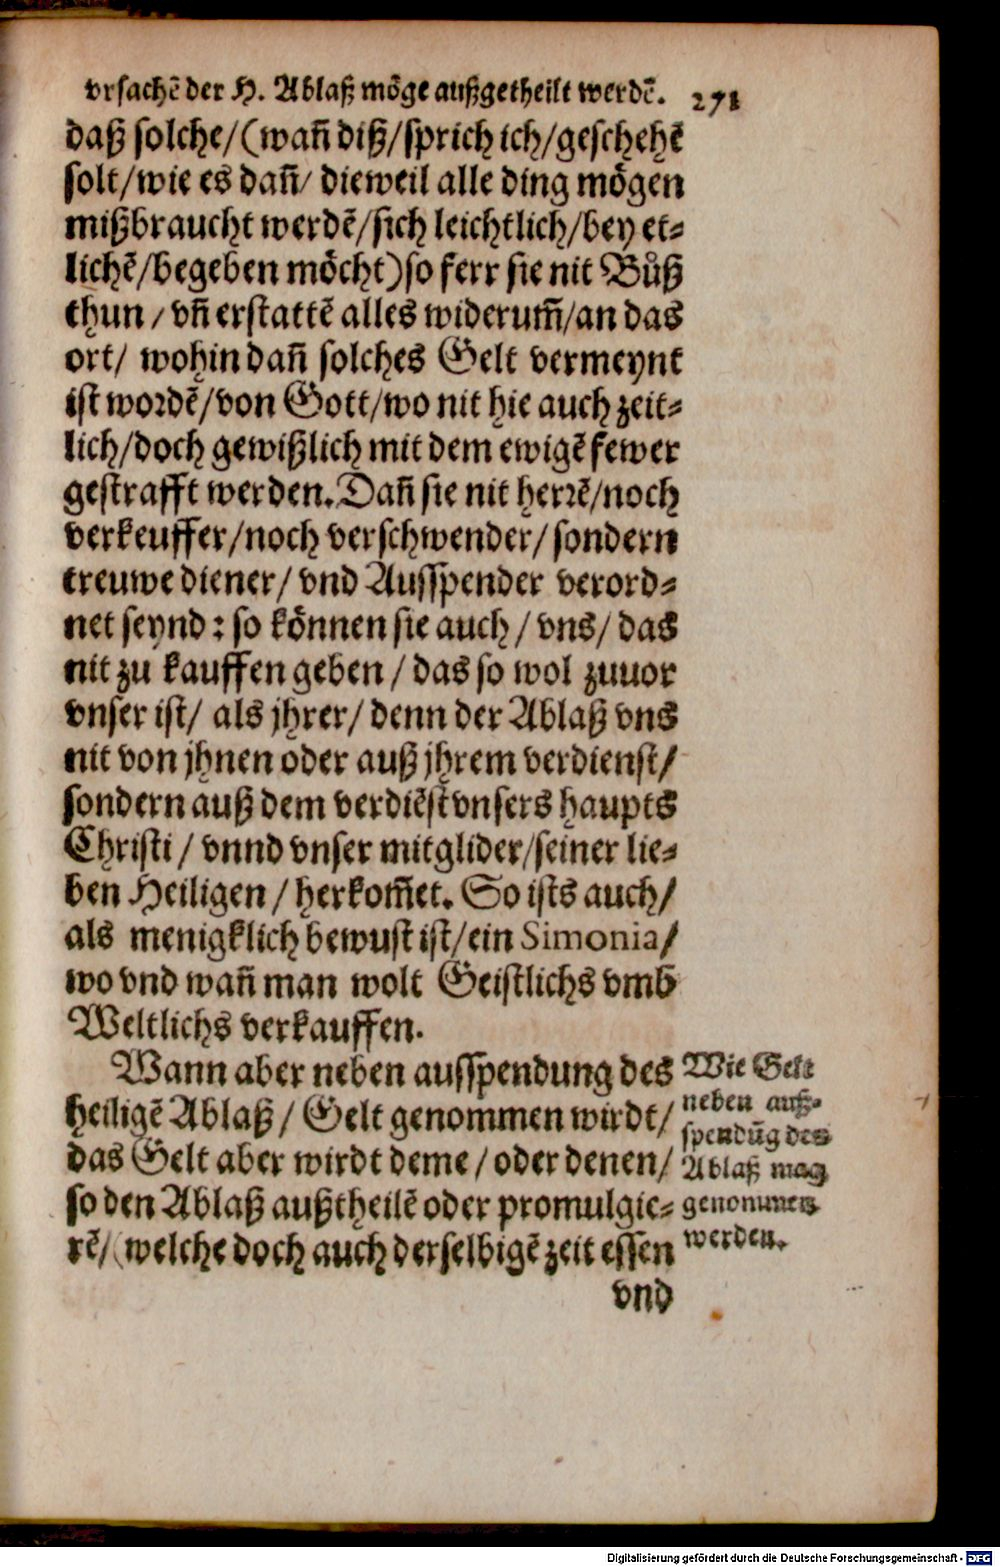 vrsachẽ der H. Ablaß mo&#x364;ge außgetheilt werdẽ. 271
daß solche/(wañ diß/sprich ich/geschehẽ
solt/wie es dañ/ dieweil alle ding mo&#x364;gen
mißbraucht werdẽ/sich leichtlich/bey et⸗
lichẽ/begeben mo&#x364;cht)so ferr sie nit Bůß
thun/ vñ erstattẽ alles widerum̃/an das
ort/ wohin dañ solches Gelt vermeynt
ist wordẽ/von Gott/wo nit hie auch zeit⸗
lich/doch gewißlich mit dem ewigẽ fewer
gestrafft werden. Dañ sie nit herrẽ/noch
verkeuffer/noch verschwender/ sondern
treuwe diener/ vnd Ausspender verord⸗
net seynd: so ko&#x364;nnen sie auch/ vns/ das
nit zu kauffen geben/ das so wol zuuor
vnser ist/ als jhrer/ denn der Ablaß vns
nit von jhnen oder auß jhrem verdienst/
sondern auß dem verdiẽst vnsers haupts
Christi/ vnnd vnser mitglider/seiner lie⸗
ben Heiligen/ herkom̃et. So ists auch/
als menigklich bewust ist/ein Simonia/
wo vnd wañ man wolt Geistlichs vmb
Weltlichs verkauffen.
Wann aber neben ausspendung des
heiligẽ Ablaß/ Gelt genommen wirdt/
das Gelt aber wirdt deme/ oder denen/
so den Ablaß außtheilẽ oder promulgie⸗
rẽ/(welche doch auch derselbigẽ zeit essen
vnd
Wie Gelt
neben auß⸗
spendũg des
Ablaß mag
genommen
werden.
Digitalisierung gefördert durch die Deutsche Forschungsgemeinschaft - DFG